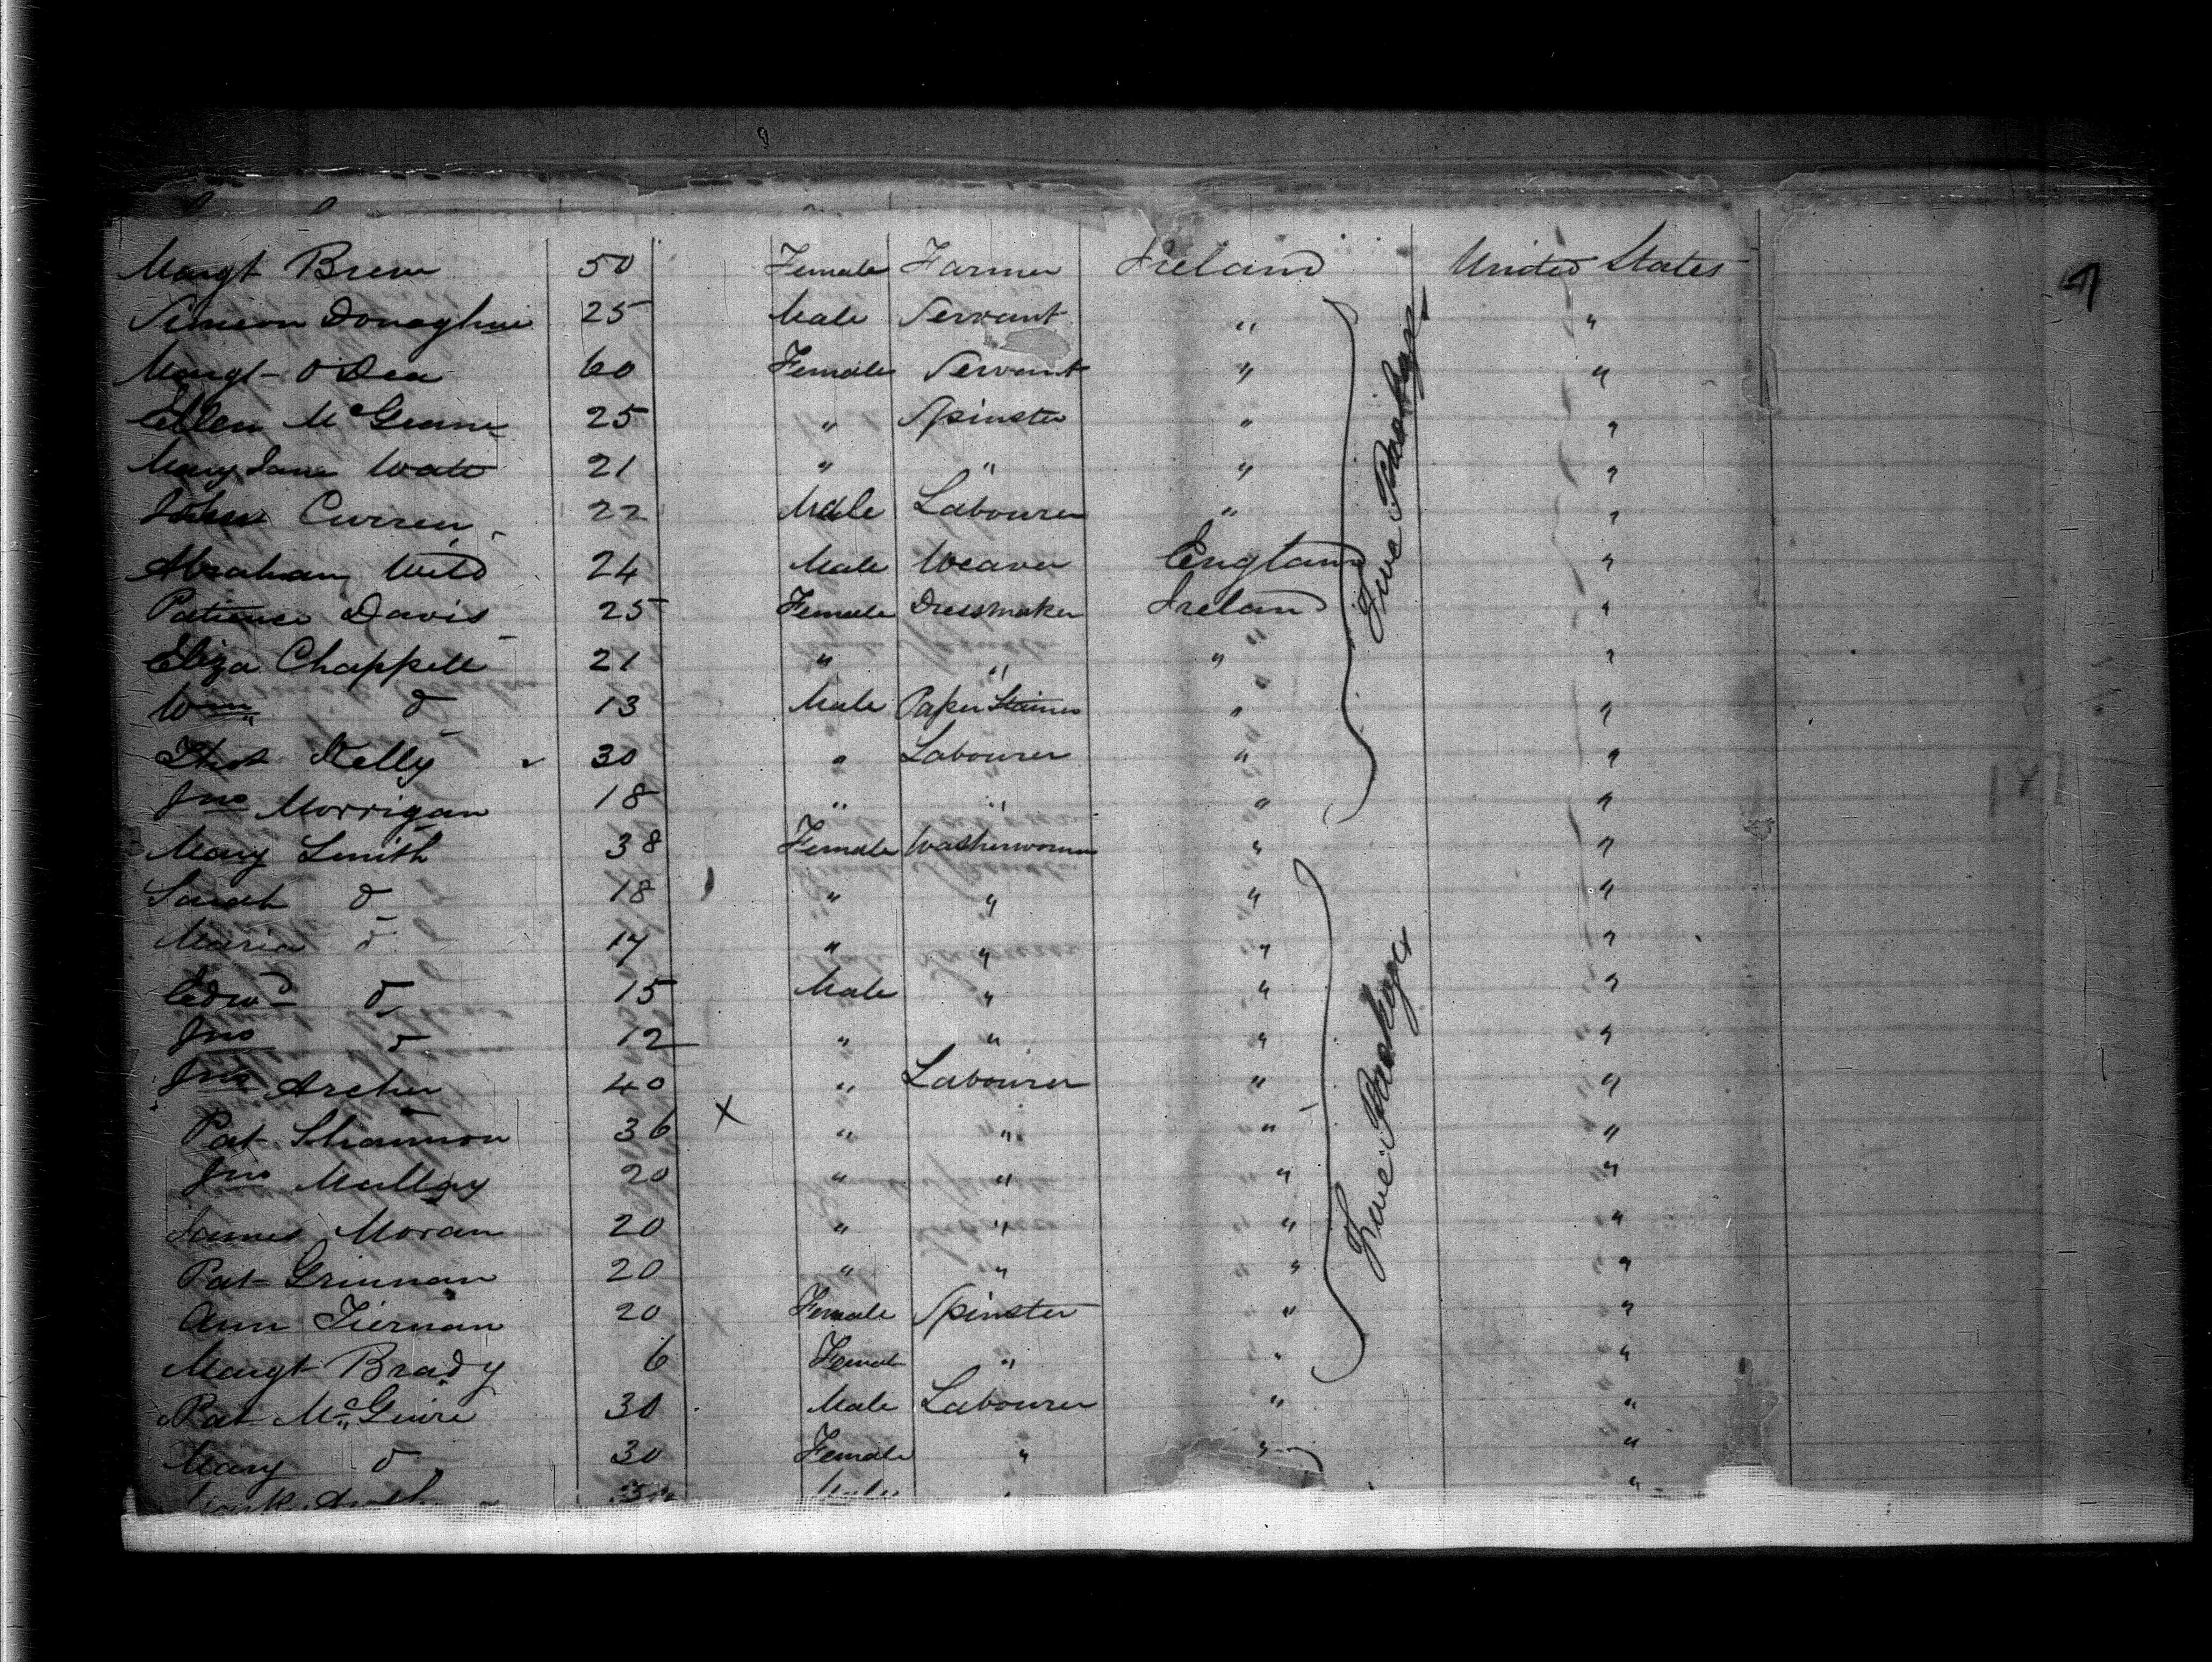 Margt Brew 50 Female Farmer Ireland United States
Simeon Donaghue 25 Male Servant " "
Margt O Dea 60 Female Servant " "
Ellen McGeane 25 " Spinster " "
Mary Jane Watt 21 " " " "
John Curren 22 Male Labourer " "
Abraham Wild 24 Male Weaver England "
Patience Davis 25 Female Dressmaker Ireland "
Eliza Chappell 21 " " " "
Wm do 13 Male Paper Stainer " "
Thos Kelly 30 " Labourer " "
Jno Morrigan 18 " " " "
Mary Smith 38 Female Washerwoman " "
Sarah do 18 " " " "
Maria do 17 " " " "
Edwd do 15 Male " " "
Jno do 12 " " " "
Jno Archer 40 " Labourer " "
Pat Shannon 36 X " " " "
Jno Mulloy 20 " " " "
James Moran 20 " " " "
Pat Grinnan 20 " " " "
Ann Tiernan 20 Female Spinster " "
Margt Brady 6 Femal " " "
Pat McGuire 30 Male Labourer " "
Mary do 30 Female " " "
Male "